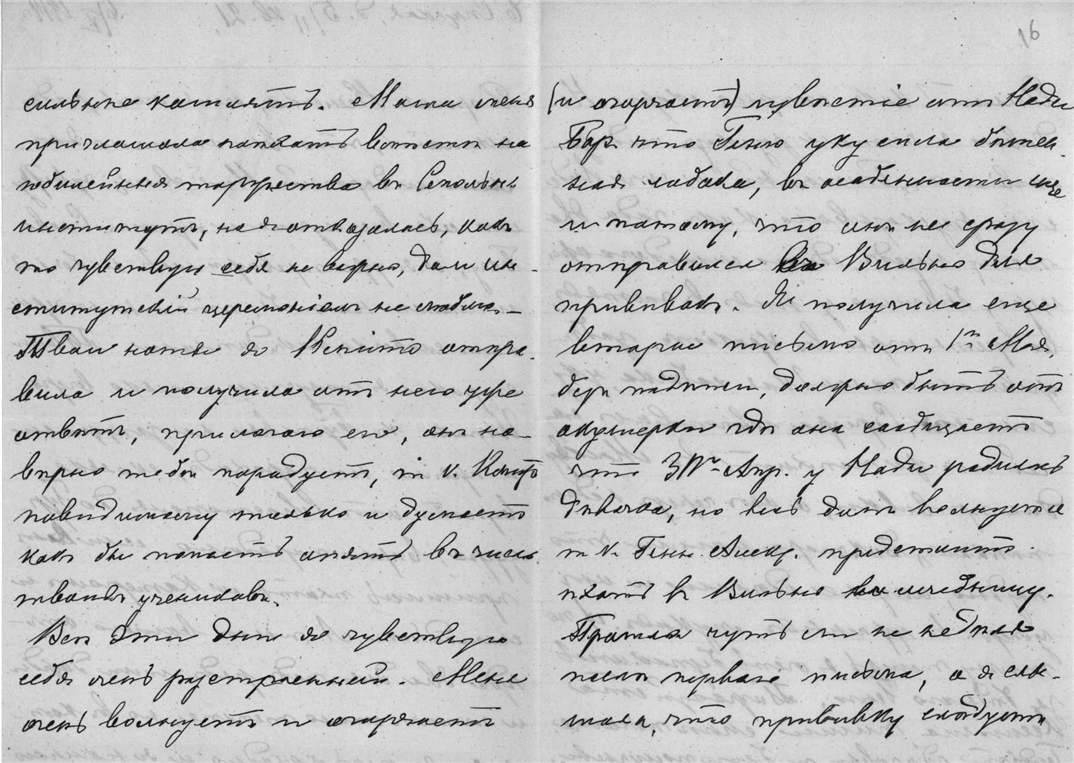 16
сильнѣе кашлять. Маша очень
приглашала поѣхать вмѣстѣ на
юбилейныя торжества въ Смольнѣ
институтъ, но я отказалась, какъ
то чувствую себя неважно, да и ин-
ститутскій церемоніалъ не люблю. –
Твои ноты я Кенито отпра-
вила и получила отъ него уже
отвѣтъ, прилагаю его, онъ на-
вѣрно тебя порадуетъ, т. к.
повидимому только и думаетъ
какъ бы попасть опять въ число
твоихъ учениковъ.
Всѣ эти дни я чувствую
себя очень разстроенной. Меня
очень волнуетъ и огорчаетъ
(и огорчаетъ) извѣстіе отъ Нади
Бар. что Геню укусила бѣшен-
ная собака, въ особенности еще
и потому, что они не сразу
отправился въ Вильно для
прививокъ. Я получила еще
второе письмо отъ 1го Мая,
безъ подписи, должно быть отъ
акушерки гдѣ она сообщаетъ
что 3го Апр. у Нади родилась
дѣвочка, но весь домъ волнуется
т. к. Генн. Алекс. предстоитъ
ѣхать въ Вильно въ лечебницу.
Прошла чуть ли не недѣля
послѣ перваго письма, а я слы-
шала, что прививку слѣдуетъ